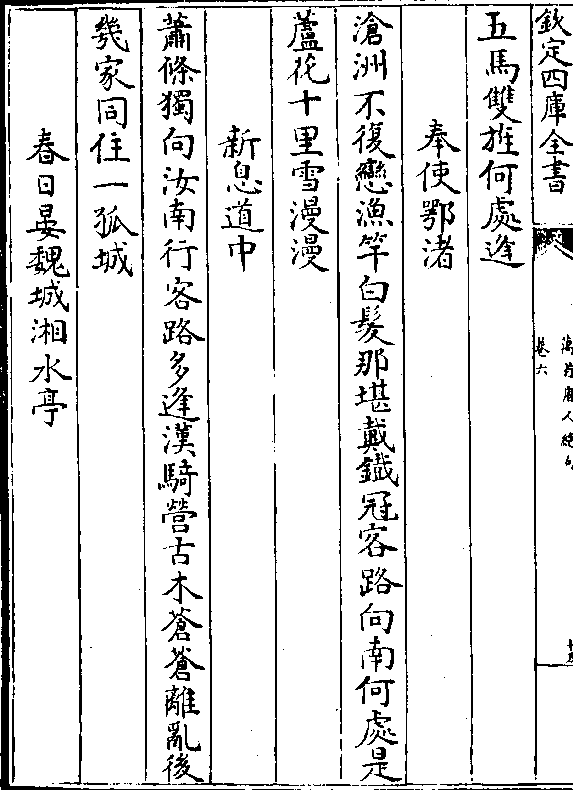 欽定四庫全書
萬首唐人絕句
卷六
五馬雙旌何處逢
奉使鄂渚
滄洲不復戀漁竿白髮那堪戴鐵冠客路向南何處是
蘆花十里雪漫漫
新息道中
蕭條獨向汝南行客路多逢漢騎營古木蒼蒼離亂後
幾家同住一孤城
春日晏魏城湘水亭